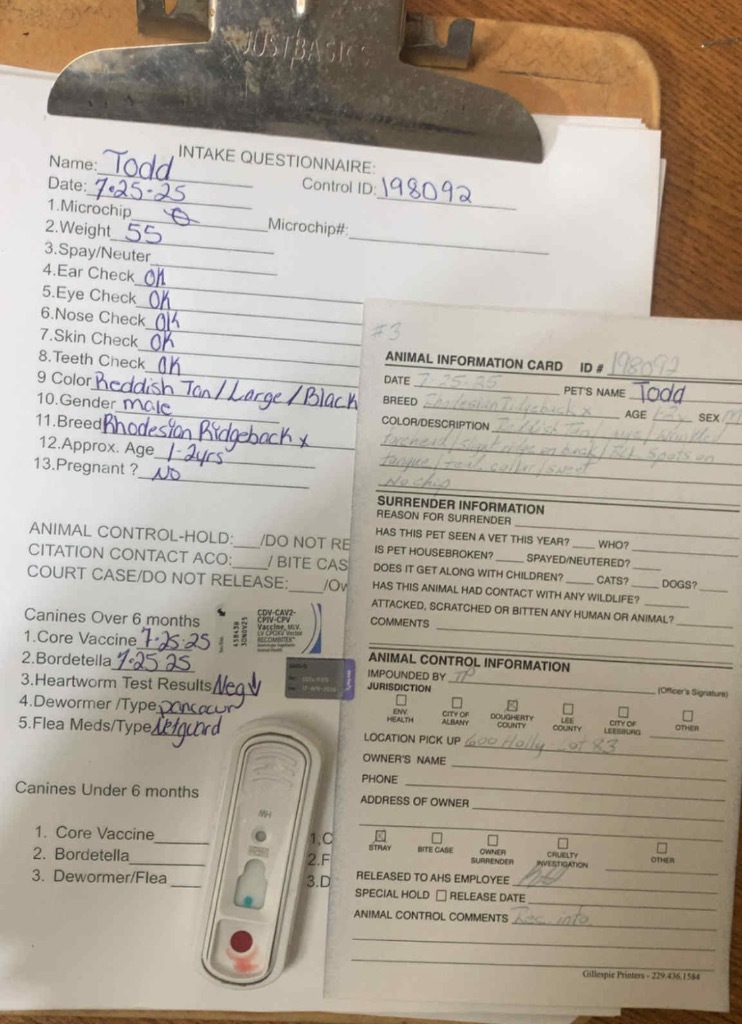 JUSTBASICS
INTAKE QUESTIONNAIRE:
Name: Todd
Control ID: 198092
Date: 7-25-25
1.Microchip Microchip#:
2.Weight 55
3.Spay/Neuter
4.Ear Check OK
5.Eye Check OK
6.Nose Check OK
7.Skin Check OK
8.Teeth Check OK
9 Color Reddish Tan/Large/Black
10.Gender male
11.Breed Rhodesian Ridgeback x
12.Approx. Age 1-2yrs
13.Pregnant ? No
ANIMAL CONTROL-HOLD: /DO NOT RE
CITATION CONTACT ACO: / BITE CAS
COURT CASE/DO NOT RELEASE: /Ow
Canines Over 6 months
1.Core Vaccine 7-25-25
2.Bordetella 7-25 25
3.Heartworm Test Results Neg
4.Dewormer /Type pancour
5.Flea Meds/Type Nefguard
CDV-CAV2-
CPIV-CPV
Vaccine, MLV,
LV CPOXV Vector
RECOMBITEK
Canines Under 6 months
1. Core Vaccine 1,C
2. Bordetella 2.F
3. Dewormer/Flea 3.D
HW
#3
ANIMAL INFORMATION CARD ID # 198092
DATE 7-25-25 PET'S NAME Todd
BREED Rhodesian Ridgeback x AGE 1-2y SEX M
COLOR/DESCRIPTION Reddish Tan / wrinkled
forehead / slight ridge on back / Blk spots on
tongue / collar / sweet
No chip
SURRENDER INFORMATION
REASON FOR SURRENDER
HAS THIS PET SEEN A VET THIS YEAR? WHO?
IS PET HOUSEBROKEN? SPAYED/NEUTERED?
DOES IT GET ALONG WITH CHILDREN? CATS? DOGS?
HAS THIS ANIMAL HAD CONTACT WITH ANY WILDLIFE?
ATTACKED, SCRATCHED OR BITTEN ANY HUMAN OR ANIMAL?
COMMENTS
ANIMAL CONTROL INFORMATION
IMPOUNDED BY TP (Officer's Signature)
JURISDICTION
ENV. HEALTH CITY OF ALBANY DOUGHERTY COUNTY LEE COUNTY CITY OF LEESBURG OTHER
LOCATION PICK UP 600 Holly Lot 83
OWNER'S NAME
PHONE
ADDRESS OF OWNER
STRAY BITE CASE OWNER SURRENDER CRUELTY INVESTIGATION OTHER
RELEASED TO AHS EMPLOYEE
SPECIAL HOLD RELEASE DATE
ANIMAL CONTROL COMMENTS info
Gillespie Printers - 229.436.1584